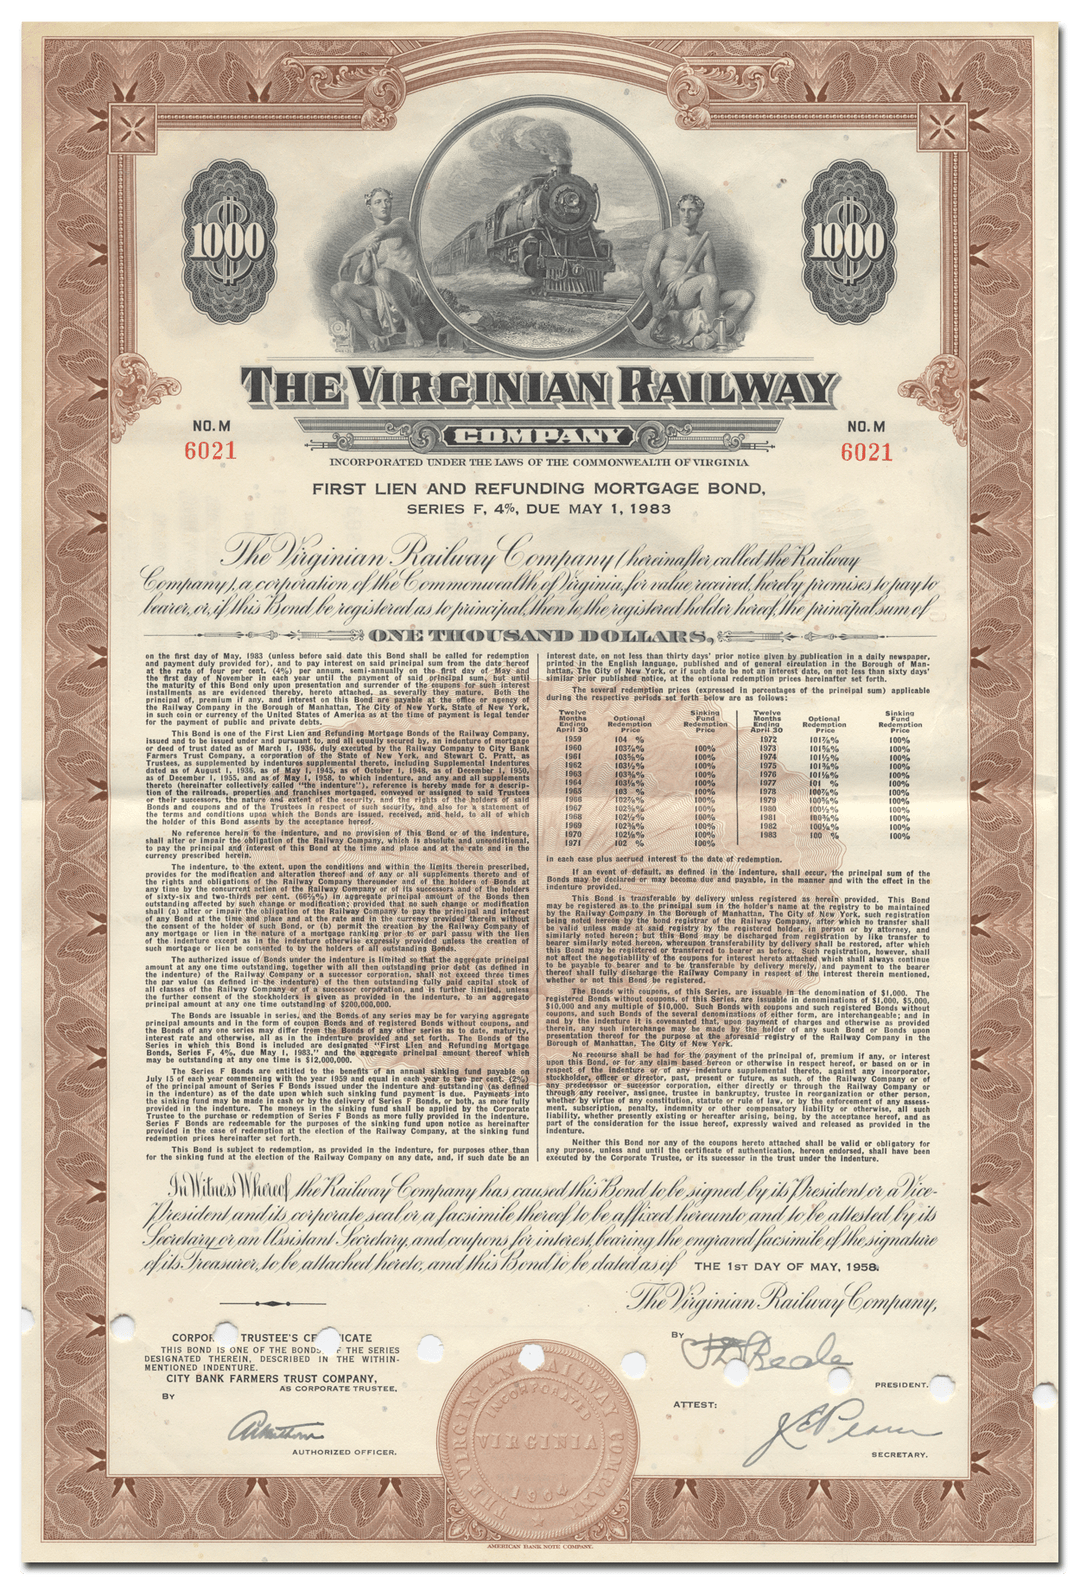 1000
1000
THE VIRGINIAN RAILWAY
COMPANY
NO. M
6021
NO. M
6021
INCORPORATED UNDER THE LAWS OF THE COMMONWEALTH OF VIRGINIA
FIRST LIEN AND REFUNDING MORTGAGE BOND,
SERIES F, 4%, DUE MAY 1, 1983
The Virginian Railway Company (hereinafter called the Railway
Company), a corporation of the Commonwealth of Virginia, for value received, hereby promises to pay to
bearer, or, if this Bond be registered as to principal, then to the registered holder hereof, the principal sum of
ONE THOUSAND DOLLARS,
on the first day of May, 1983 (unless before said date this Bond shall be called for redemption
and payment duly provided for), and to pay interest on said principal sum from the date hereof
at the rate of four per cent. (4%) per annum, semi-annually on the first day of May and
the first day of November in each year until the payment of said principal sum, but until
the maturity of this Bond only upon presentation and surrender of the coupons for such interest
installments as are evidenced thereby, hereto attached, as severally they mature. Both the
principal of, premium if any, and interest on this Bond are payable at the office or agency of
the Railway Company in the Borough of Manhattan, The City of New York, State of New York,
in such coin or currency of the United States of America as at the time of payment is legal tender
for the payment of public and private debts.
This Bond is one of the First Lien and Refunding Mortgage Bonds of the Railway Company,
issued and to be issued under and pursuant to, and all equally secured by, an indenture of mortgage
or deed of trust dated as of March 1, 1936, duly executed by the Railway Company to City Bank
Farmers Trust Company, a corporation of the State of New York, and Stewart C. Pratt, as
Trustees, as supplemented by indentures supplemental thereto, including Supplemental Indentures
dated as of August 1, 1936, as of May 1, 1945, as of October 1, 1948, as of December 1, 1950,
as of December 1, 1955, and as of May 1, 1958, to which indenture, and any and all supplements
thereto (hereinafter collectively called "the indenture"), reference is hereby made for a descrip-
tion of the railroads, properties and franchises mortgaged, conveyed or assigned to said Trustees
or their successors, the nature and extent of the security, and the rights of the holders of said
Bonds and coupons and of the Trustees in respect of such security, and also for a statement of
the terms and conditions upon which the Bonds are issued, received, and held, to all of which
the holder of this Bond assents by the acceptance hereof.
No reference herein to the indenture, and no provision of this Bond or of the indenture,
shall alter or impair the obligation of the Railway Company, which is absolute and unconditional,
to pay the principal and interest of this Bond at the time and place and at the rate and in the
currency prescribed herein.
The indenture, to the extent, upon the conditions and within the limits therein prescribed,
provides for the modification and alteration thereof and of any or all supplements thereto and of
the rights and obligations of the Railway Company thereunder and of the holders of Bonds at
any time by the concurrent action of the Railway Company or of its successors and of the holders
of sixty-six and two-thirds per cent. (66⅔%) in aggregate principal amount of the Bonds then
outstanding affected by such change or modification; provided that no such change or modification
shall (a) alter or impair the obligation of the Railway Company to pay the principal and interest
of any Bond at the time and place and at the rate and in the currency provided therein without
the consent of the holder of such Bond, or (b) permit the creation by the Railway Company of
any mortgage or lien in the nature of a mortgage ranking prior to or pari passu with the lien
of the indenture except as in the indenture otherwise expressly provided unless the creation of
such mortgage or lien be consented to by the holders of all outstanding Bonds.
The authorized issue of Bonds under the indenture is limited so that the aggregate principal
amount at any one time outstanding, together with all then outstanding prior debt (as defined in
the indenture) of the Railway Company or a successor corporation, shall not exceed three times
the par value (as defined in the indenture) of the then outstanding fully paid capital stock of
all classes of the Railway Company or of a successor corporation, and is further limited, unless
the further consent of the stockholders is given as provided in the indenture, to an aggregate
principal amount at any one time outstanding of $200,000,000.
The Bonds are issuable in series, and the Bonds of any series may be for varying aggregate
principal amounts and in the form of coupon Bonds and of registered Bonds without coupons, and
the Bonds of any one series may differ from the Bonds of any other series as to date, maturity,
interest rate and otherwise, all as in the indenture provided and set forth. The Bonds of the
Series in which this Bond is included are designated "First Lien and Refunding Mortgage
Bonds, Series F, 4%, due May 1, 1983." and the aggregate principal amount thereof which
may be outstanding at any one time is $12,000,000.
The Series F Bonds are entitled to the benefits of an annual sinking fund payable on
July 15 of each year commencing with the year 1959 and equal in each year to two per cent. (2%)
of the principal amount of Series F Bonds issued under the indenture and outstanding (as defined
in the indenture) as of the date upon which such sinking fund payment is due. Payments into
the sinking fund may be made in cash or by the delivery of Series F Bonds, or both, as more fully
provided in the indenture. The moneys in the sinking fund shall be applied by the Corporate
Trustee to the purchase or redemption of Series F Bonds as more fully provided in the indenture.
Series F Bonds are redeemable for the purposes of the sinking fund upon notice as hereinafter
provided in the case of redemption at the election of the Railway Company, at the sinking fund
redemption prices hereinafter set forth.
This Bond is subject to redemption, as provided in the indenture, for purposes other than
for the sinking fund at the election of the Railway Company on any date, and, if such date be an
interest date, on not less than thirty days' prior notice given by publication in a daily newspaper,
printed in the English language, published and of general circulation in the Borough of Man-
hattan, The City of New York, or if such date be not an interest date, on not less than sixty days'
similar prior published notice, at the optional redemption prices hereinafter set forth.
The several redemption prices (expressed in percentages of the principal sum) applicable
during the respective periods set forth below are as follows:
Twelve Months Ending April 30 Optional Redemption Price Sinking Fund Redemption Price Twelve Months Ending April 30 Optional Redemption Price Sinking Fund Redemption Price
1959 104 % 1972 100%
1960 100% 1973 100%
1961 100% 1974 100%
1962 100% 1975 100%
1963 100% 1976 100%
1964 100% 1977 101 % 100%
1965 103 % 100% 1978 100%
1966 100% 1979 100%
1967 100% 1980 100%
1968 100% 1981 100%
1969 100% 1982 100%
1970 100% 1983 100 % 100%
1971 102 % 100%
in each case plus accrued interest to the date of redemption.
If an event of default, as defined in the indenture, shall occur, the principal sum of the
Bonds may be declared or may become due and payable, in the manner and with the effect in the
indenture provided.
This Bond is transferable by delivery unless registered as herein provided. This Bond
may be registered as to the principal sum in the holder's name at the registry to be maintained
by the Railway Company in the Borough of Manhattan, The City of New York, such registration
being noted hereon by the bond registrar of the Railway Company, after which no transfer shall
be valid unless made at said registry by the registered holder, in person or by attorney, and
similarly noted hereon; but this Bond may be discharged from registration by like transfer to
bearer similarly noted hereon, whereupon transferability by delivery shall be restored, after which
this Bond may be registered or transferred to bearer as before. Such registration, however, shall
not affect the negotiability of the coupons for interest hereto attached which shall always continue
to be payable to bearer and to be transferable by delivery merely, and payment to the bearer
thereof shall fully discharge the Railway Company in respect of the interest therein mentioned,
whether or not this Bond be registered.
The Bonds with coupons, of this Series, are issuable in the denomination of $1,000. The
registered Bonds without coupons, of this Series, are issuable in denominations of $1,000, $5,000,
$10,000 and any multiple of $10,000. Such Bonds with coupons and such registered Bonds without
coupons, and such Bonds of the several denominations of either form, are interchangeable; and in
and by the indenture it is covenanted that, upon payment of charges and otherwise as provided
therein, any such interchange may be made by the holder of any such Bond or Bonds upon
presentation thereof for the purpose at the aforesaid registry of the Railway Company in the
Borough of Manhattan, The City of New York.
No recourse shall be had for the payment of the principal of, premium if any, or interest
upon this Bond, or for any claim based hereon or otherwise in respect hereof, or based on or in
respect of the indenture or of any indenture supplemental thereto, against any incorporator,
stockholder, officer or director, past, present or future, as such, of the Railway Company or of
any predecessor or successor corporation, either directly or through the Railway Company or
through any receiver, assignee, trustee in bankruptcy, trustee in reorganization or other person,
whether by virtue of any constitution, statute or rule of law, or by the enforcement of any assess-
ment, subscription, penalty, indemnity or other compensatory liability or otherwise, all such
liability, whether presently existing or hereafter arising, being, by the acceptance hereof, and as
part of the consideration for the issue hereof, expressly waived and released as provided in the
indenture.
Neither this Bond nor any of the coupons hereto attached shall be valid or obligatory for
any purpose, unless and until the certificate of authentication, hereon endorsed, shall have been
executed by the Corporate Trustee, or its successor in the trust under the indenture.
In Witness Whereof, the Railway Company has caused this Bond to be signed by its President or a Vice-
President and its corporate seal or a facsimile thereof to be affixed hereunto and to be attested by its
Secretary or an Assistant Secretary, and coupons for interest, bearing the engraved facsimile of the signature
of its Treasurer, to be attached hereto, and this Bond to be dated as of THE 1ST DAY OF MAY, 1958.
The Virginian Railway Company,
CORPOR TRUSTEE'S CE IFICATE
THIS BOND IS ONE OF THE BONDS, OF THE SERIES
DESIGNATED THEREIN, DESCRIBED IN THE WITHIN-
MENTIONED INDENTURE.
CITY BANK FARMERS TRUST COMPANY,
AS CORPORATE TRUSTEE,
BY
AUTHORIZED OFFICER.
BY
Beale
PRESIDENT.
ATTEST:
SECRETARY.
THE VIRGINIAN RAILWAY COMPANY
INCORPORATED
VIRGINIA
1904
AMERICAN BANK NOTE COMPANY.